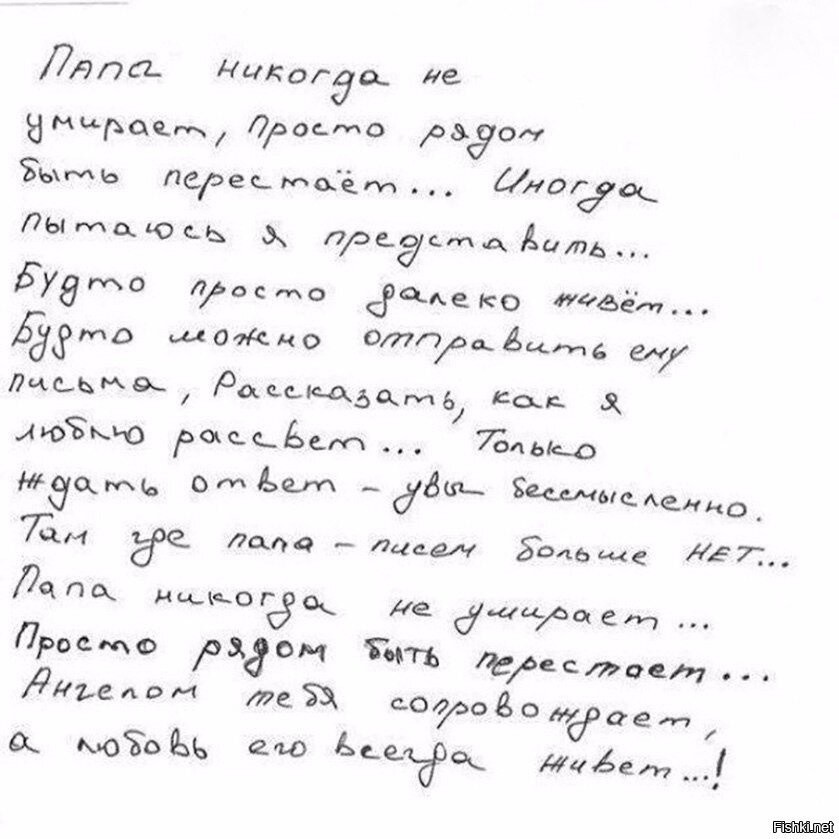 Папа никогда не
умирает, просто рядом
быть перестаёт... Иногда
пытаюсь я представить...
Будто просто далеко живёт...
Будто можно отправить ему
письма, Рассказать, как я
люблю рассвет... Только
ждать ответ - увы бессмысленно.
Там где папа - писем больше НЕТ...
Папа никогда не умирает...
Просто рядом быть перестает...
Ангелом тебя сопровождает,
а любовь его всегда живет...!
Fishki.net